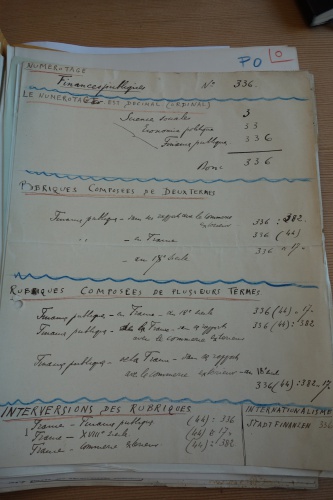 PO
0
NUMEROTAGE
Finances publiques N° 336
LE NUMEROTAGE EST DECIMAL (ORDINAL)
Science sociales 3
Economie politique 33
Finances publiques 336
Donc 336
RUBRIQUES COMPOSÉES DE DEUX TERMES
Finances publiques - dans ses rapports avec le commerce 336:382
extérieur
" - en France 336 (44)
- au 18e siècle 336 "17"
RUBRIQUES COMPOSÉES DE PLUSIEURS TERMES
Finances publiques - en France - au 18e siècle 336(44) "17"
Finances publiques - de la France - dans ses rapports 336(44):382
avec le commerce extérieur
Finances publiques - de la France - dans ses rapports
avec le commerce extérieur - au 18e siècle
336(44):382 "17"
INTERVERSIONS DES RUBRIQUES
France - Finances publiques (44):336
France - XVIIIe siècle (44) "17"
France - commerce extérieur (44):382
INTERNATIONALISME
STADTFINANZEN 336